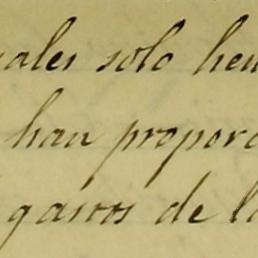 uales solo hem
han proporc
gasos de la